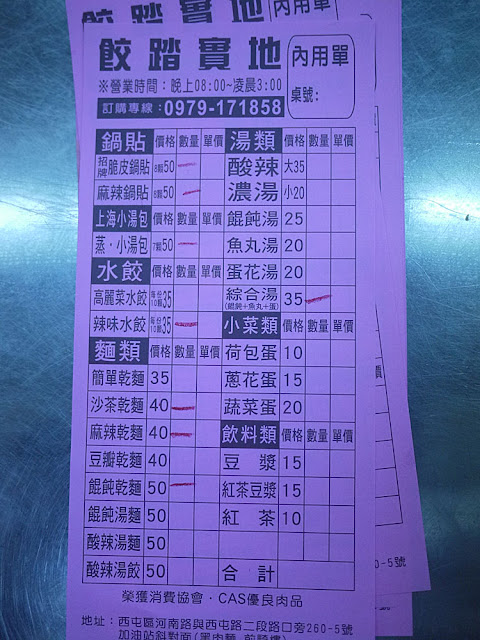 內用單
餃踏實地
內用單
※營業時間：晚上08:00~凌晨3:00
桌號：
訂購專線：0979-171858
鍋貼 價格 數量 單價
招牌脆皮鍋貼 8顆50
麻辣鍋貼 8顆50
上海小湯包 價格 數量 單價
蒸·小湯包 50
水餃 價格 數量 單價
高麗菜水餃 35
辣味水餃 35
麵類 價格 數量 單價
簡單乾麵 35
沙茶乾麵 40
麻辣乾麵 40
豆瓣乾麵 40
餛飩乾麵 50
餛飩湯麵 50
酸辣湯麵 50
酸辣湯餃 50
湯類 價格 數量 單價
酸辣 大35
濃湯 小20
餛飩湯 25
魚丸湯 20
蛋花湯 20
綜合湯 35
(餛飩+魚丸+蛋)
小菜類 價格 數量 單價
荷包蛋 10
蔥花蛋 15
蔬菜蛋 20
飲料類 價格 數量 單價
豆漿 15
紅茶豆漿 15
紅茶 10
合計
榮獲消費協會·CAS優良肉品
地址：西屯區河南路與西屯路二段路口旁260-5號
加油站斜對面
0-5號